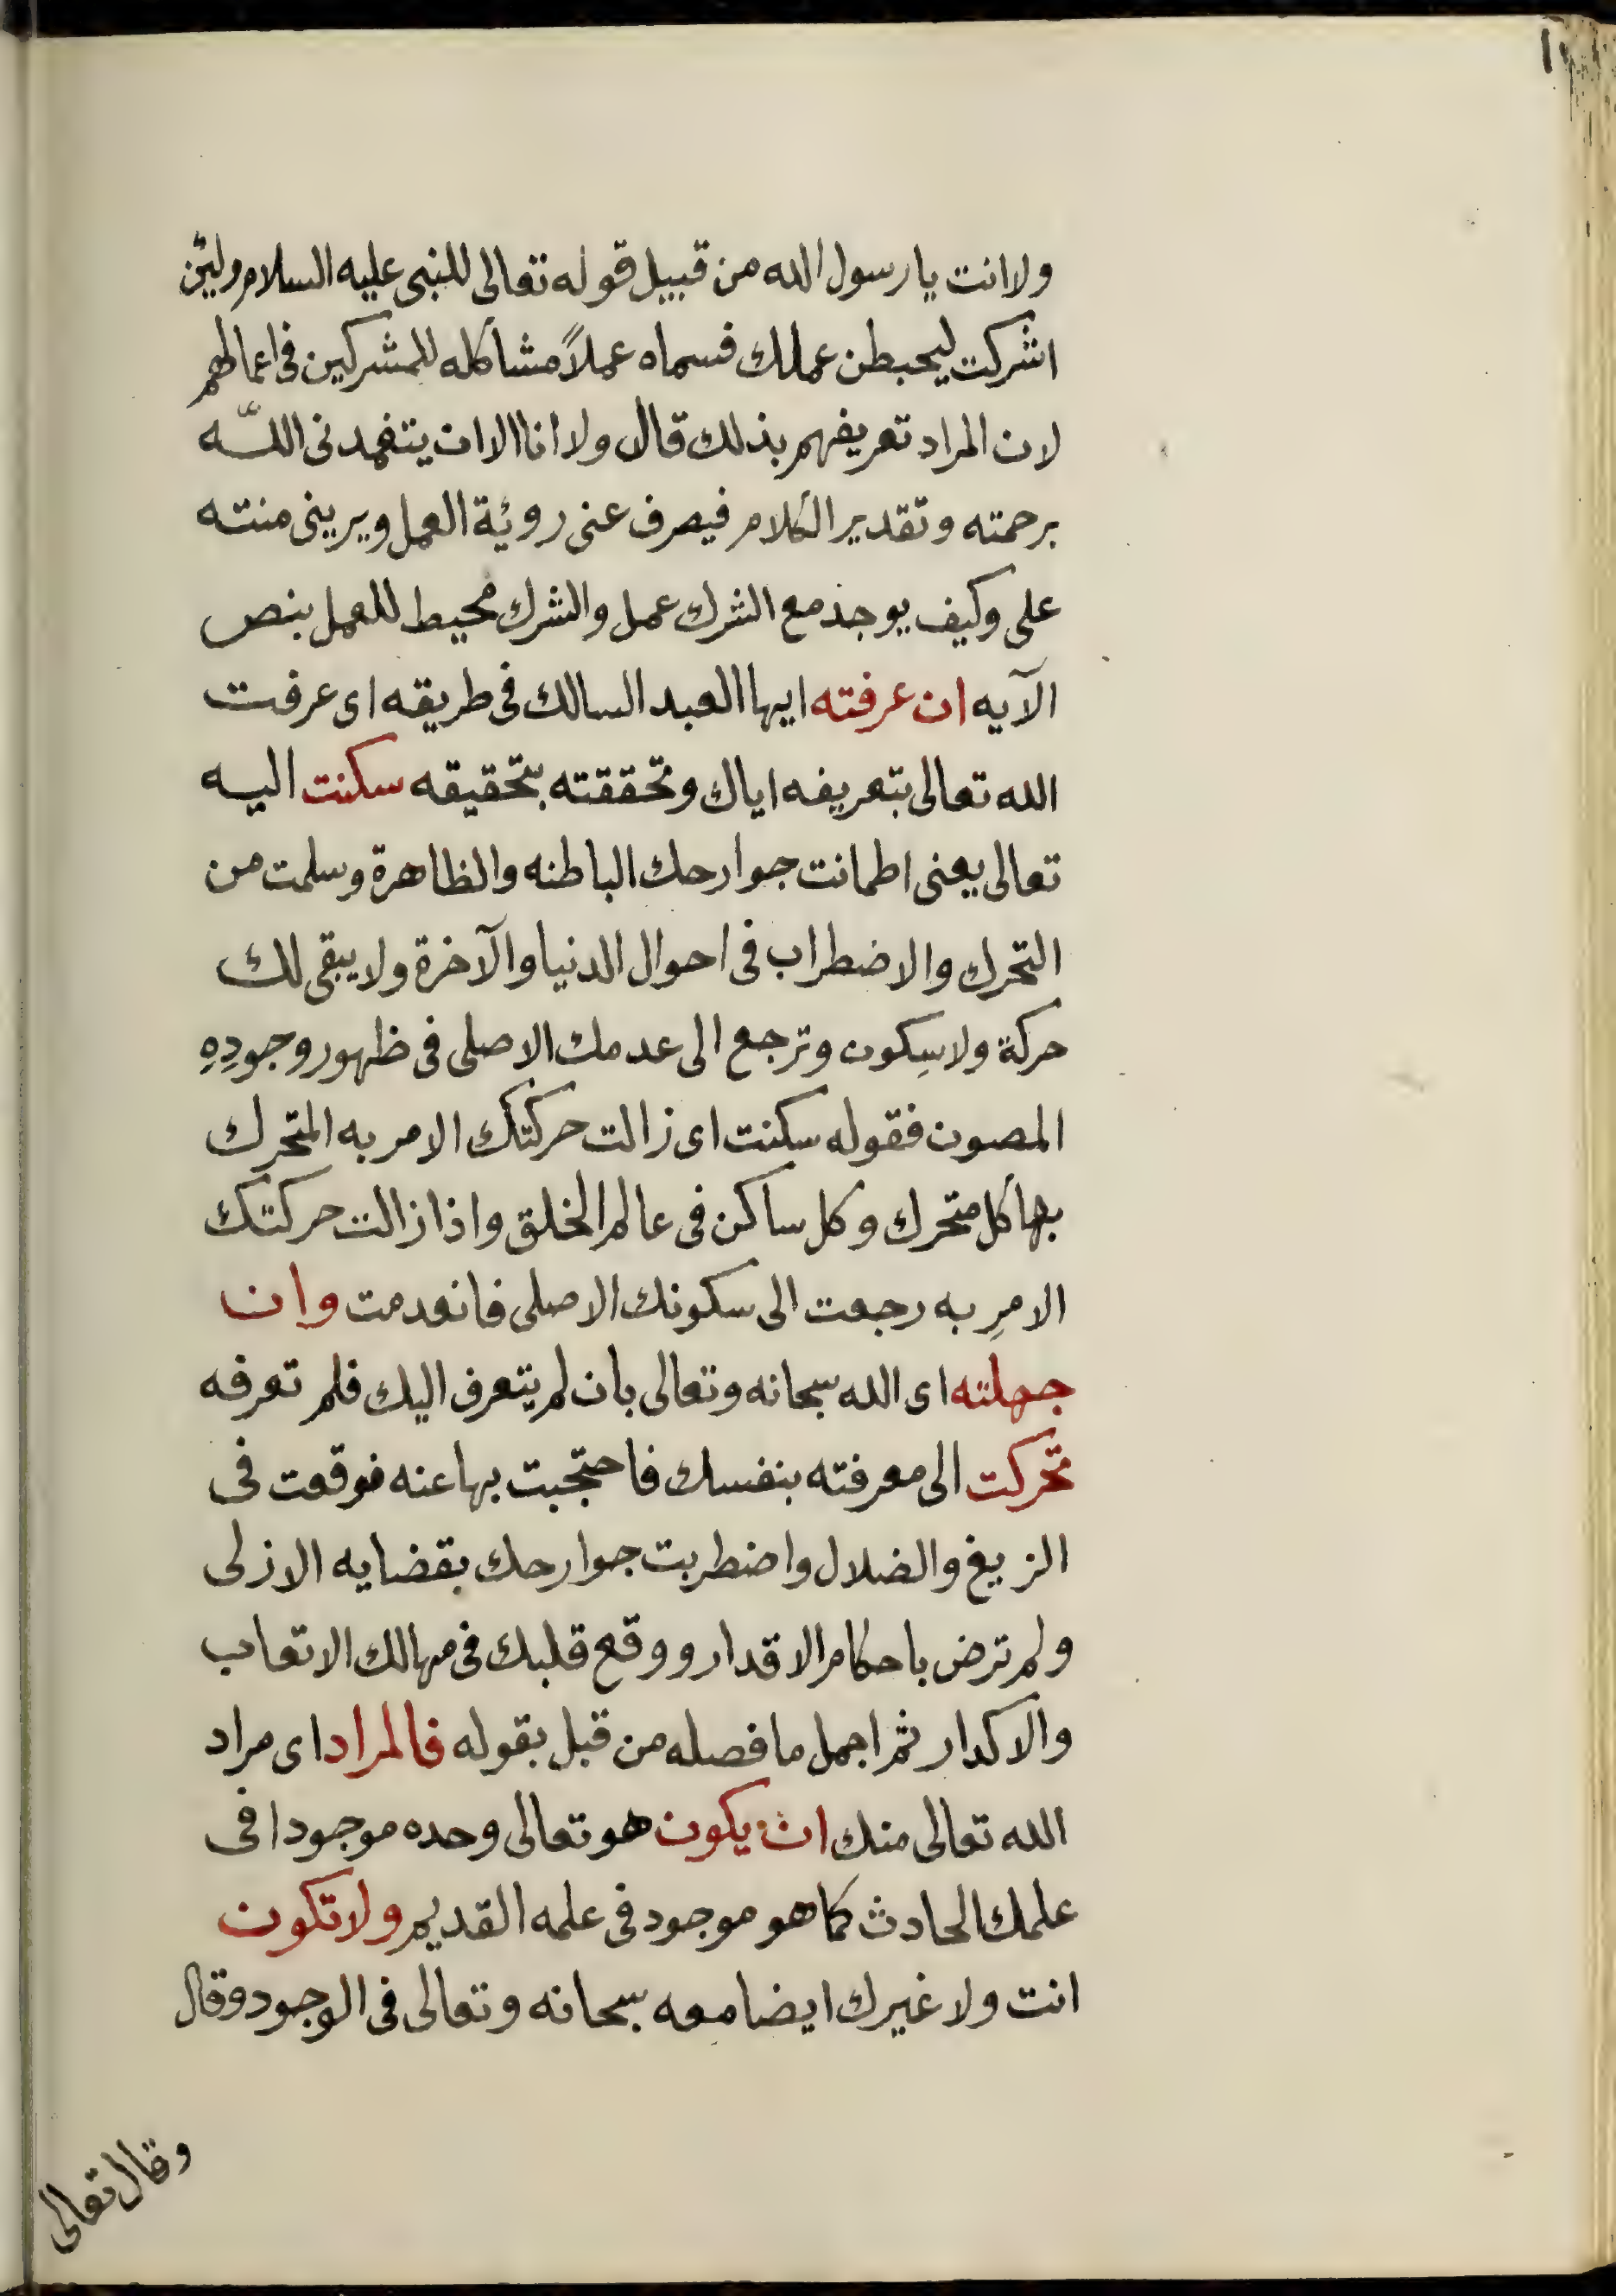 ولا انت يا رسول الله من قبيل قوله تعالى للنبى عليه السلام ولئن
اشركت ليحبطن عملك فسماه عملاً مشاكله للمشركين فى اعمالهم
لان المراد تعريفهم بذلك قال ولا انا الا ان يتغمدنى اللّه
برحمته وتقدير الكلام فيصرف عنى روئية العمل ويرينى منته
على وكيف يوجد مع الشرك عمل والشرك محيط للعمل بنص
الآيه ان عرفته ايها العبد السالك فى طريقه اى عرفت
الله تعالى بتعريفه اياك وتحققته بتحقيقه سكنت اليه
تعالى يعنى اطمانت جوارحك الباطنه والظاهرة وسلمت من
التحرك والاضطراب فى احوال الدنيا والآخرة ولا يبقى لك
حركة ولا سِكون وترجع الى عدمك الاصلى فى ظهور وجودِهِ
المصون فقوله سكنت اى زالت حركتك الامر به المتحرك
بها كل متحرك وكل ساكن فى عالم الخلق واذا زالت حركتك
الامرِ به رجعت الى سكونك الاصلى فانعدمت وان
جهلته اى الله سبحانه وتعالى بان لم يتعرف اليك فلم تعرفه
تحركت الى معرفته بنفسك فاحتجبت بها عنه فوقعت فى
الزيغ والضلال واضطربت جوارحك بقضايه الازلى
ولم ترض باحكام الاقدار ووقع قلبك فى مهالك الاتعاب
والاكدار ثم اجمل ما فصله من قبل بقوله فالمراد اى مراد
الله تعالى منك ان يكون هو تعالى وحده موجودا فى
علمك الحادث كما هو موجود فى علمه القديم ولا تكون
انت ولا غيرك ايضا معه سبحانه وتعالى فى الوجود وقال
وقال تعالى